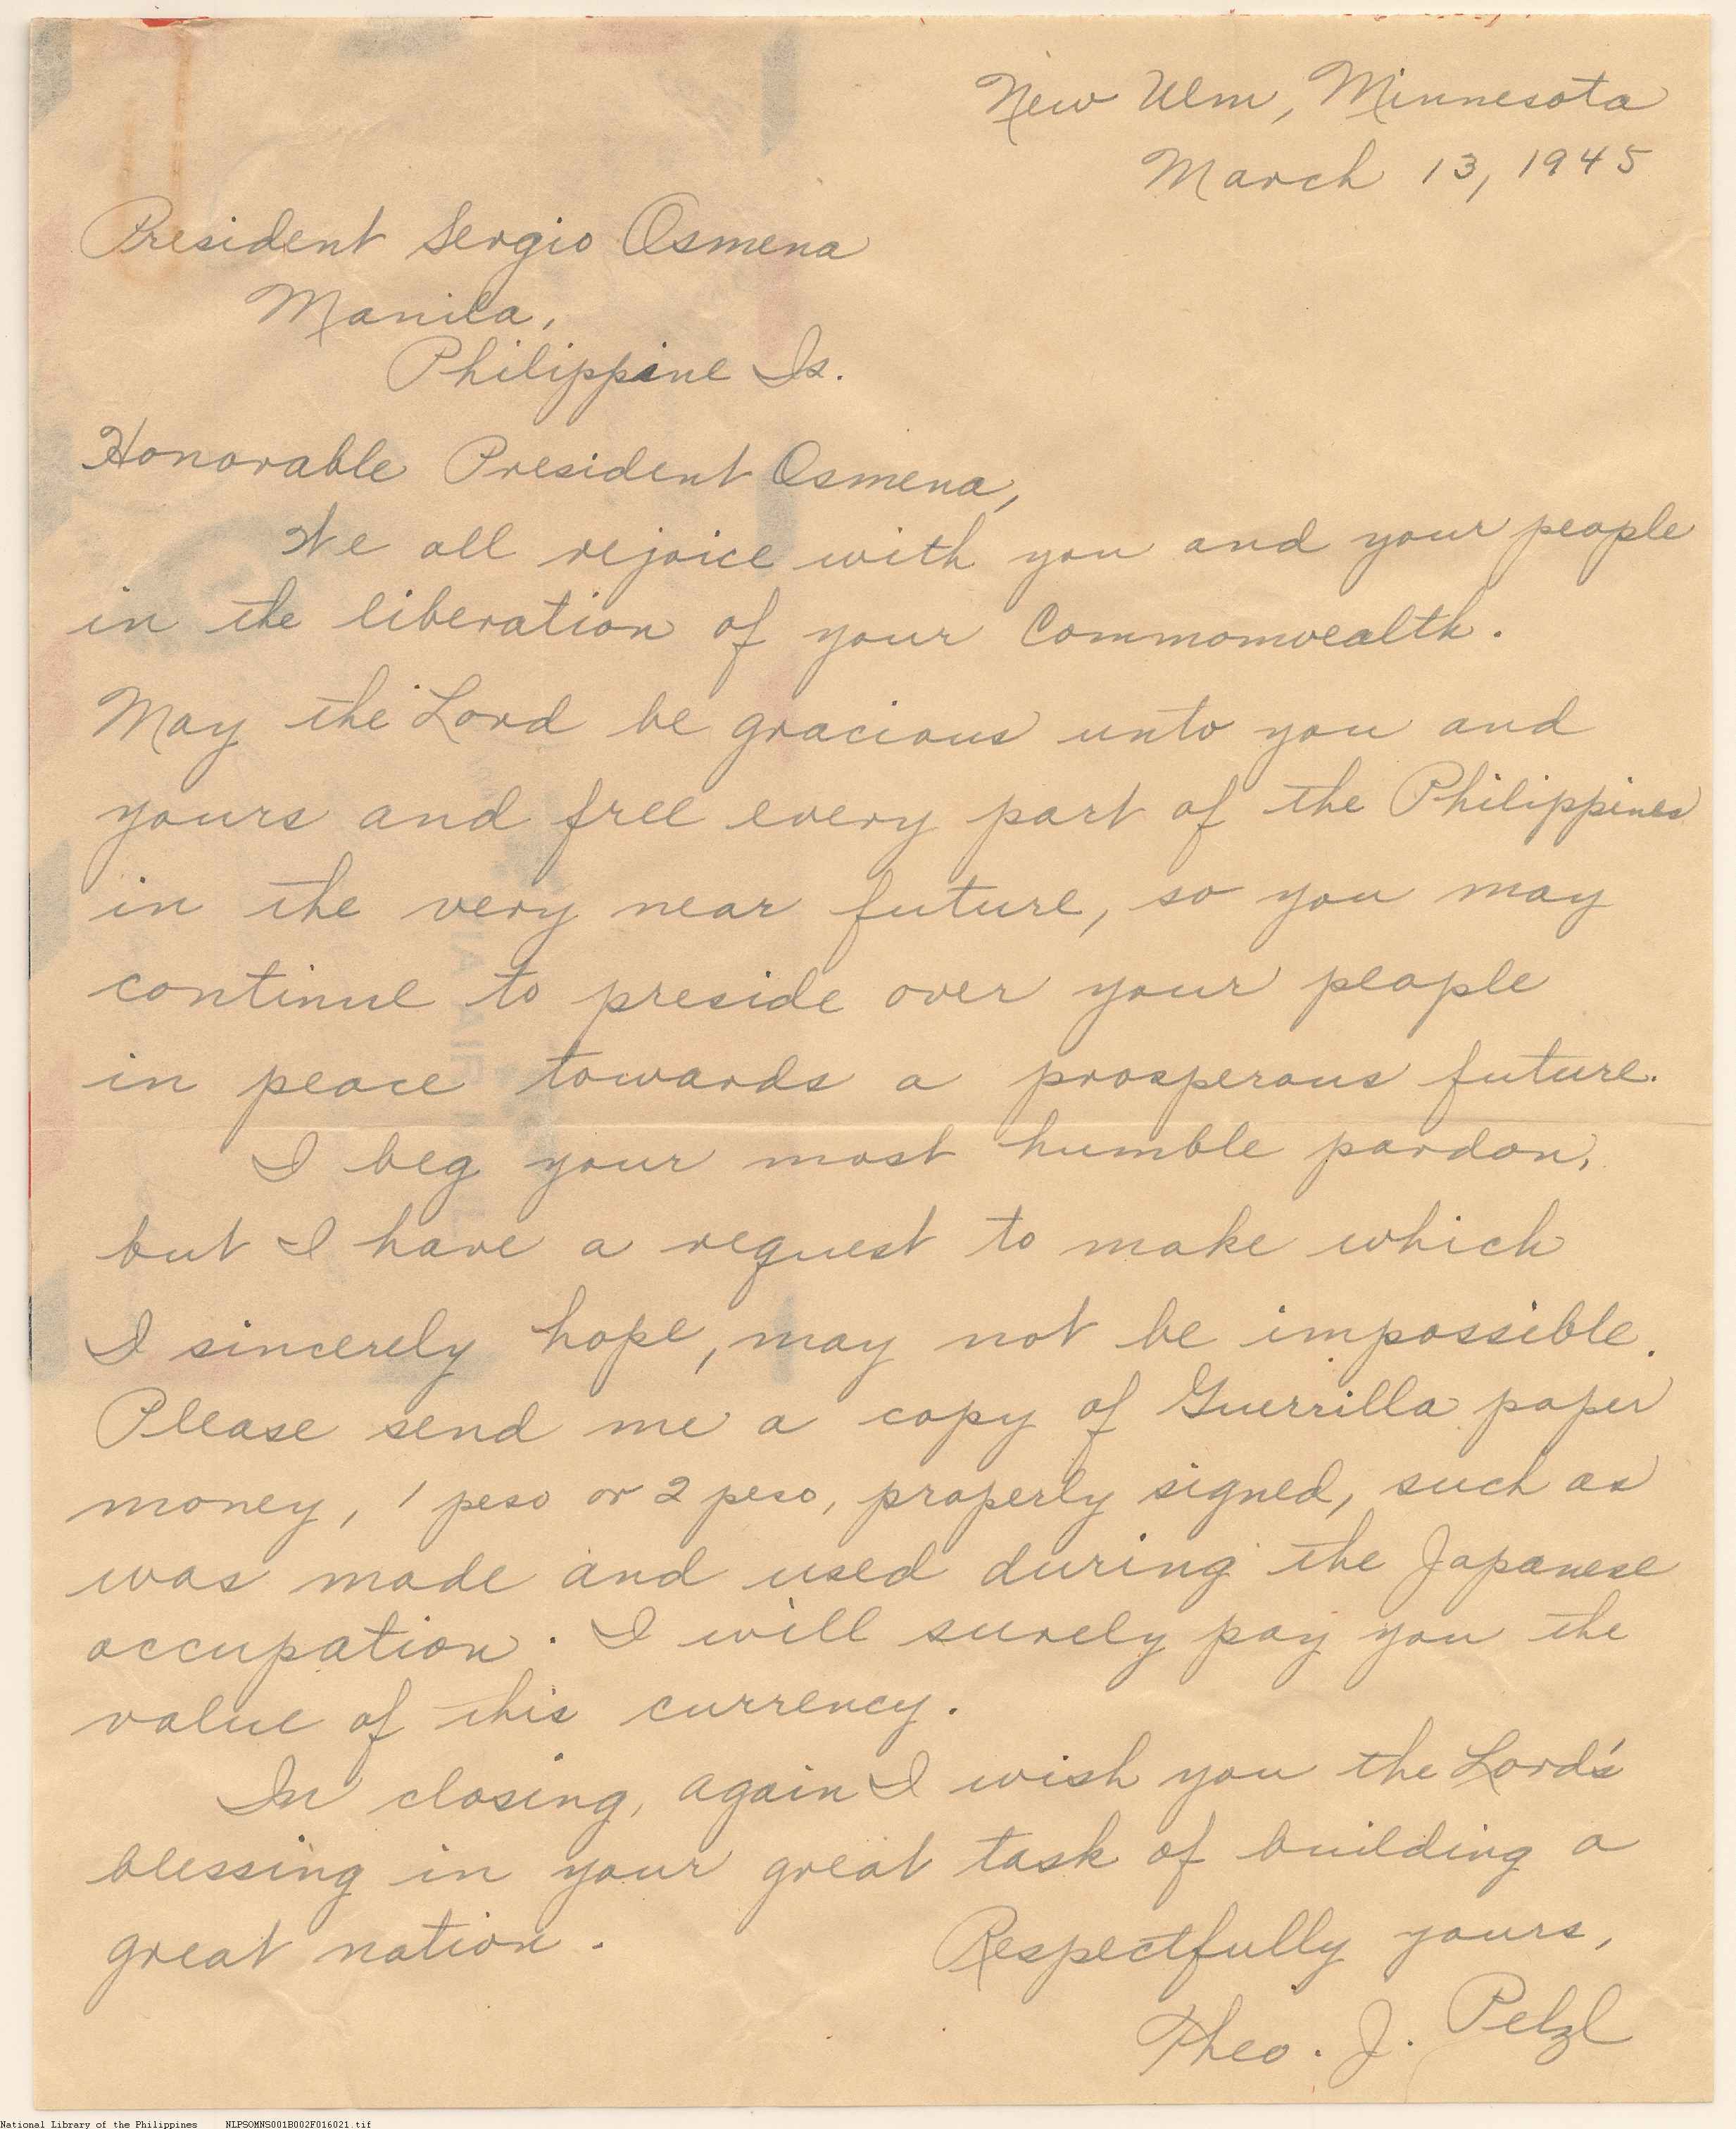 New Ulm, Minnesota
March 13, 1945
President Sergio Osmena
Manila,
Philippine Is.
Honorable President Osmena,
We all rejoice with you and your people
in the liberation of your Commonwealth.
May the Lord be gracious unto you and
yours and free every part of the Philippines
in the very near future, so you may
continue to preside over your people
in peace towards a prosperous future.
I beg your most humble pardon,
but I have a request to make which
I sincerely hope, may not be impossible.
Please send me a copy of Guerrilla paper
money, 1 peso or 2 peso, properly signed, such as
was made and used during the Japanese
occupation. I will surely pay you the
value of this currency.
In closing, again I wish you the Lord's
blessing in your great task of building a
great nation.
Respectfully yours,
Theo. J. Pelzl
National Library of the Philippines NLPSOMNS001B002F016021.tif